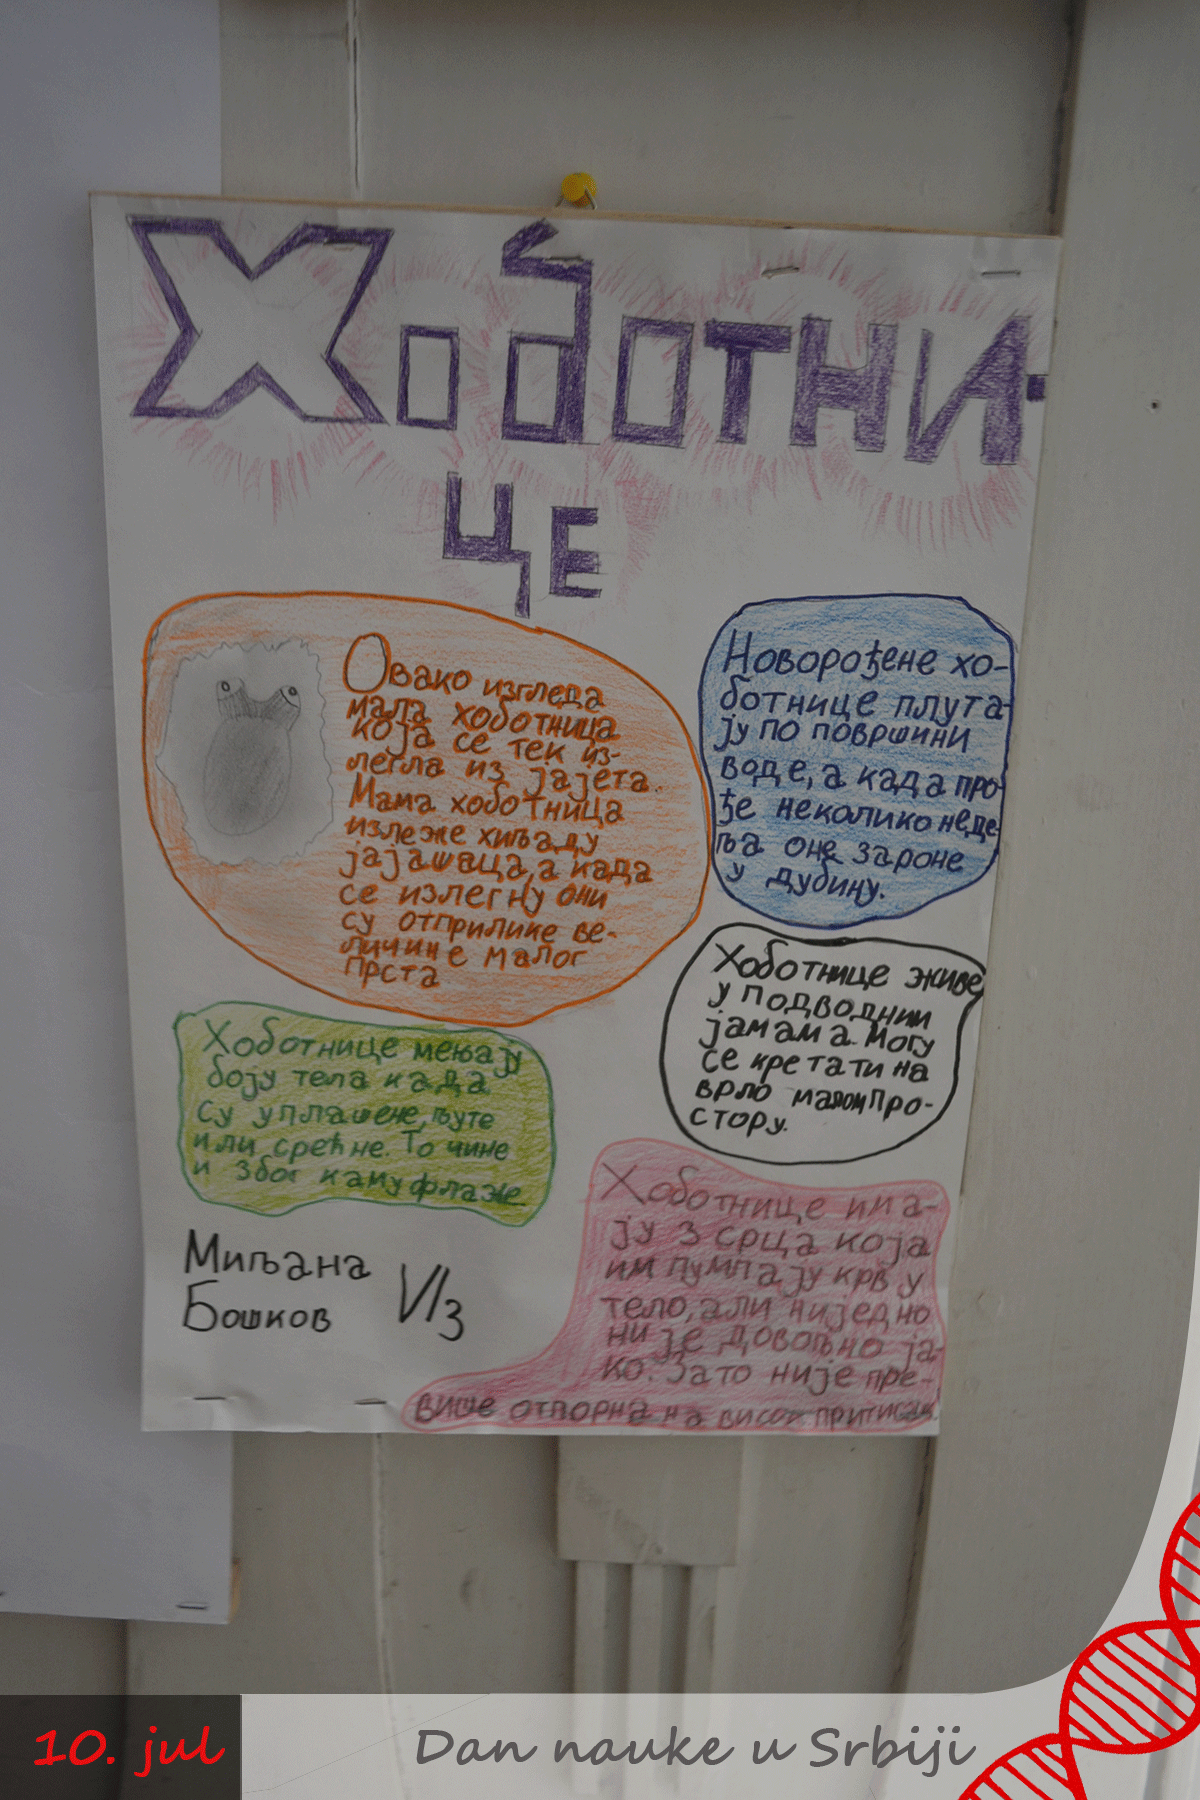 Хоботни-
це
Овако изгледа
мала хоботница
која се тек из-
легла из јајета.
Мама хоботница
излеже хиљаду
јајашаца, а када
се излегну они
су отприлике ве-
личине малог
прста
Новорођене хо-
ботнице плута-
ју по површини
воде, а када про-
ђе неколико неде-
ља оне зароне
у дубину.
Хоботнице живе
у подводним
јамама. Могу
се кретати на
врло малом про-
стору.
Хоботнице мењају
боју тела када
су уплашене, љуте
или срећне. То чине
и због камуфлаже
Хоботнице има-
ју 3 срца која
им пумпају крв у
тело, али ниједно
није довољно ја-
ко. Зато није пре-
више отпорна на висок притисак.
Миљана
Бошков VI3
10. jul
Dan nauke u Srbiji